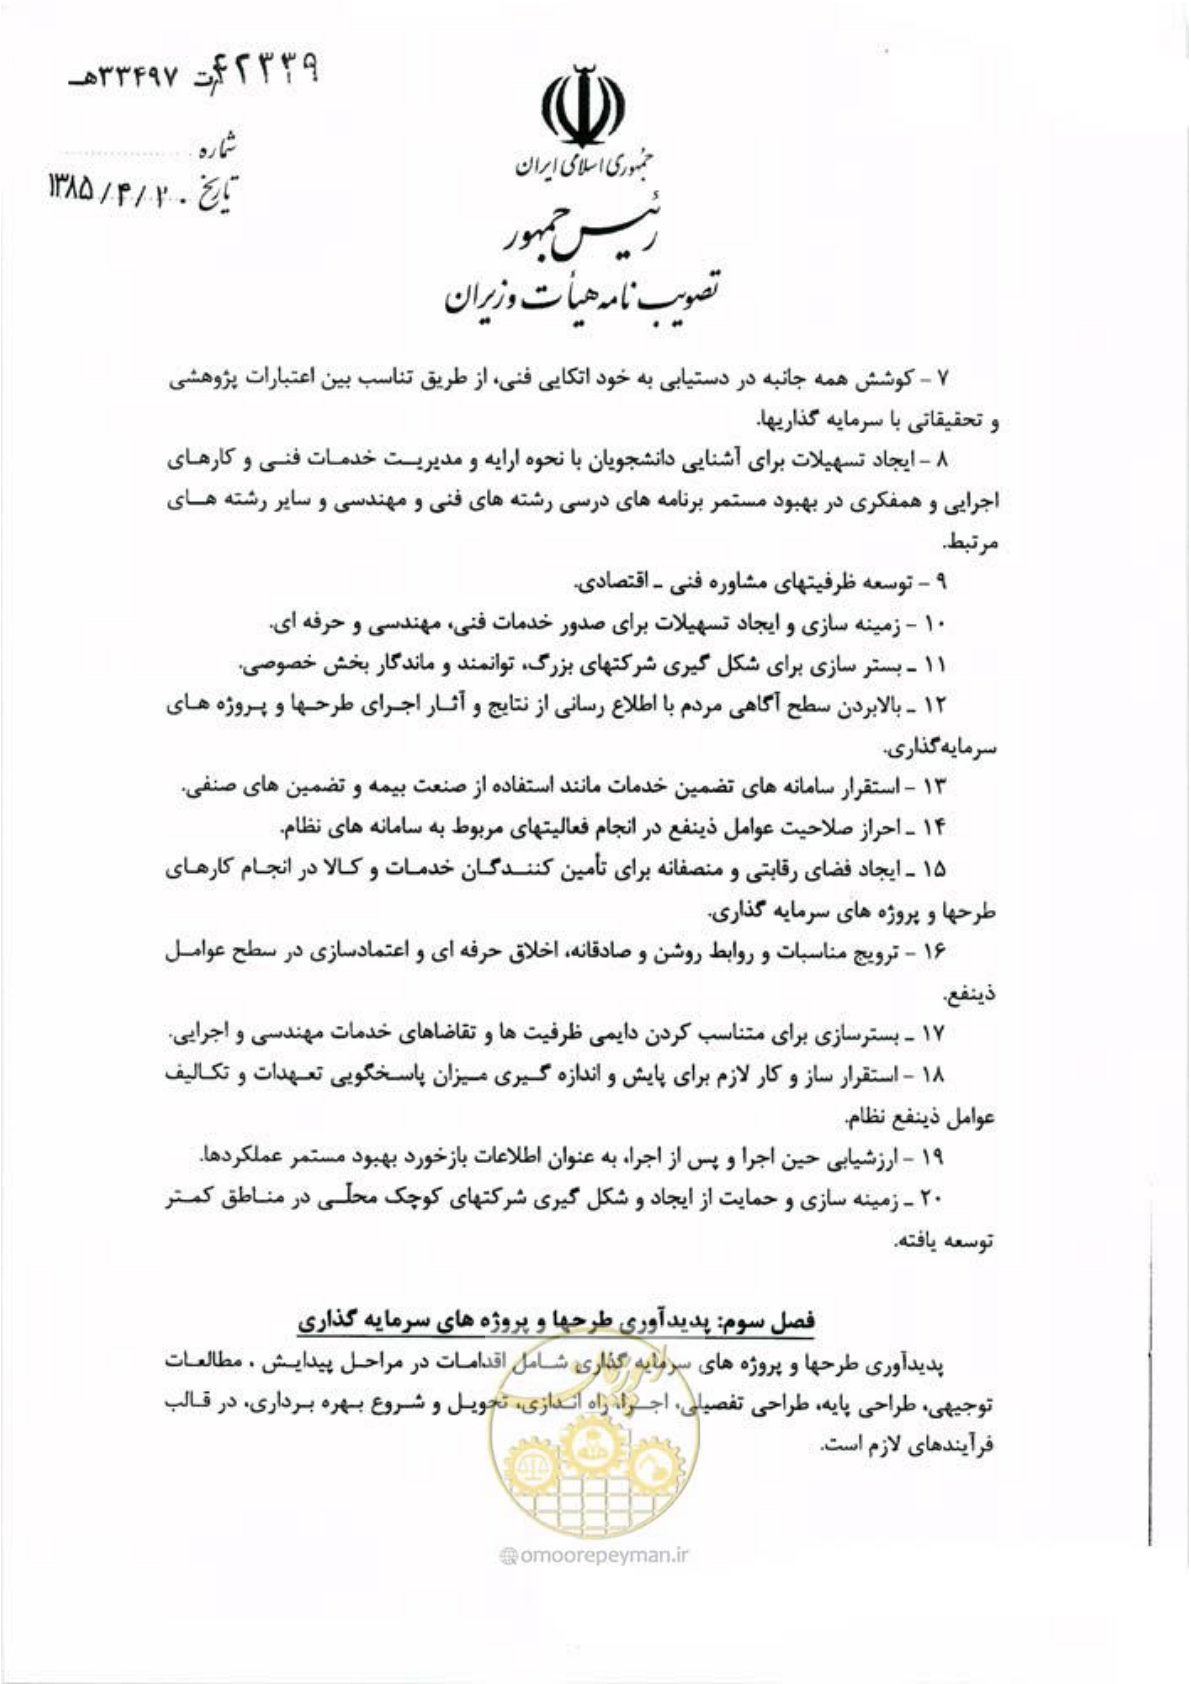 ۴۲۳۳۹/ت ۳۳۴۹۷هـ
شماره
تاریخ ۱۳۸۵/۴/۲۰
جمهوری اسلامی ایران
رئیس جمهور
تصویب نامه هیأت وزیران
۷ – کوشش همه جانبه در دستیابی به خود اتکایی فنی، از طریق تناسب بین اعتبارات پژوهشی
و تحقیقاتی با سرمایه گذاریها.
۸ – ایجاد تسهیلات برای آشنایی دانشجویان با نحوه ارایه و مدیریت خدمات فنی و کارهای
اجرایی و همفکری در بهبود مستمر برنامه های درسی رشته های فنی و مهندسی و سایر رشته های
مرتبط.
۹ – توسعه ظرفیتهای مشاوره فنی ـ اقتصادی.
۱۰ – زمینه سازی و ایجاد تسهیلات برای صدور خدمات فنی، مهندسی و حرفه ای.
۱۱ ـ بستر سازی برای شکل گیری شرکتهای بزرگ، توانمند و ماندگار بخش خصوصی.
۱۲ ـ بالابردن سطح آگاهی مردم با اطلاع رسانی از نتایج و آثار اجرای طرحها و پروژه های
سرمایه‌گذاری.
۱۳ – استقرار سامانه های تضمین خدمات مانند استفاده از صنعت بیمه و تضمین های صنفی.
۱۴ ـ احراز صلاحیت عوامل ذینفع در انجام فعالیتهای مربوط به سامانه های نظام.
۱۵ ـ ایجاد فضای رقابتی و منصفانه برای تأمین کنندگان خدمات و کالا در انجام کارهای
طرحها و پروژه های سرمایه گذاری.
۱۶ – ترویج مناسبات و روابط روشن و صادقانه، اخلاق حرفه ای و اعتمادسازی در سطح عوامل
ذینفع.
۱۷ ـ بسترسازی برای متناسب کردن دایمی ظرفیت ها و تقاضاهای خدمات مهندسی و اجرایی.
۱۸ – استقرار ساز و کار لازم برای پایش و اندازه گیری میزان پاسخگویی تعهدات و تکالیف
عوامل ذینفع نظام.
۱۹ – ارزشیابی حین اجرا و پس از اجرا، به عنوان اطلاعات بازخورد بهبود مستمر عملکردها.
۲۰ ـ زمینه سازی و حمایت از ایجاد و شکل گیری شرکتهای کوچک محلّی در مناطق کمتر
توسعه یافته.
فصل سوم: پدیدآوری طرحها و پروژه های سرمایه گذاری
پدیدآوری طرحها و پروژه های سرمایه گذاری شامل اقدامات در مراحل پیدایش ، مطالعات
توجیهی، طراحی پایه، طراحی تفصیلی، اجرا، راه اندازی، تحویل و شروع بهره برداری، در قالب
فرآیندهای لازم است.
امور پیمان
@omoorepeyman.ir